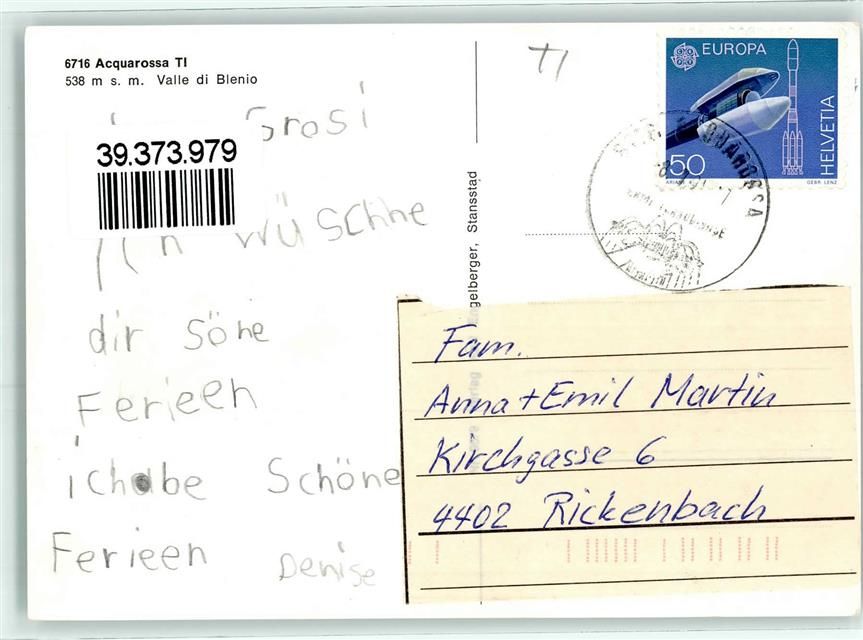 6716 Acquarossa TI
538 m s. m. Valle di Blenio
Grosi
39.373.979
wüschhe
dir söhe
Ferieen
ichabe Schöne
Ferieen Denise
gelberger, Stansstad
TI
EUROPA
HELVETIA
50
ARIANE 4
GEBR. LENZ
Fam.
Anna + Emil Martin
Kirchgasse 6
4402 Rickenbach